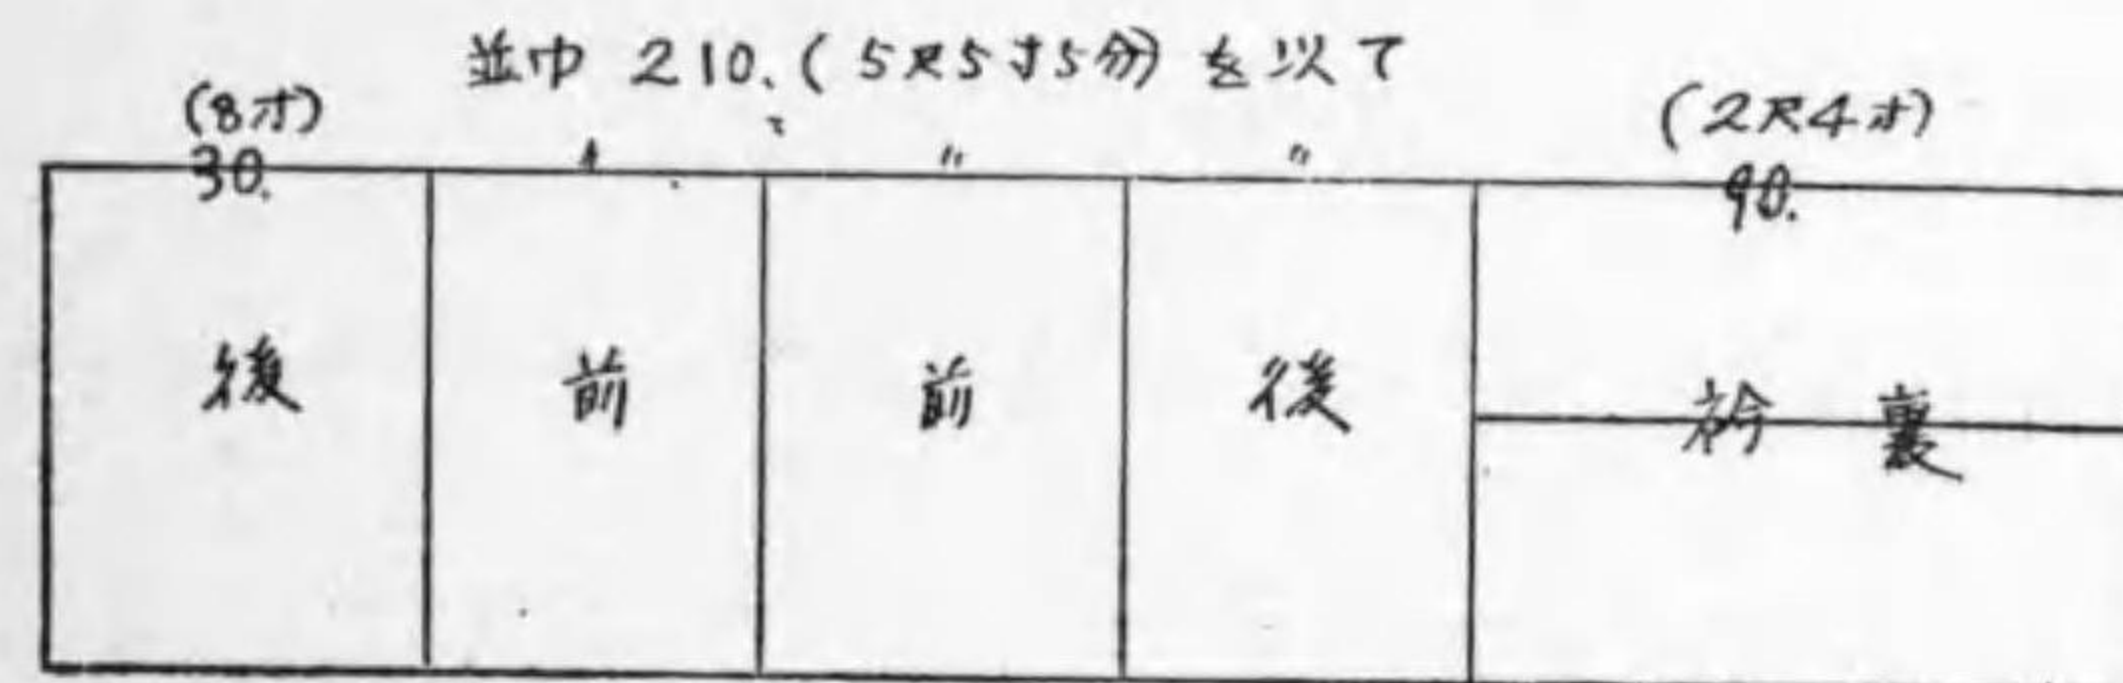 並巾 210.(5尺5寸5分)を以て
(8寸)
(2尺4寸)
30.
〃
〃
90.
後
前
前
後
衿 裏